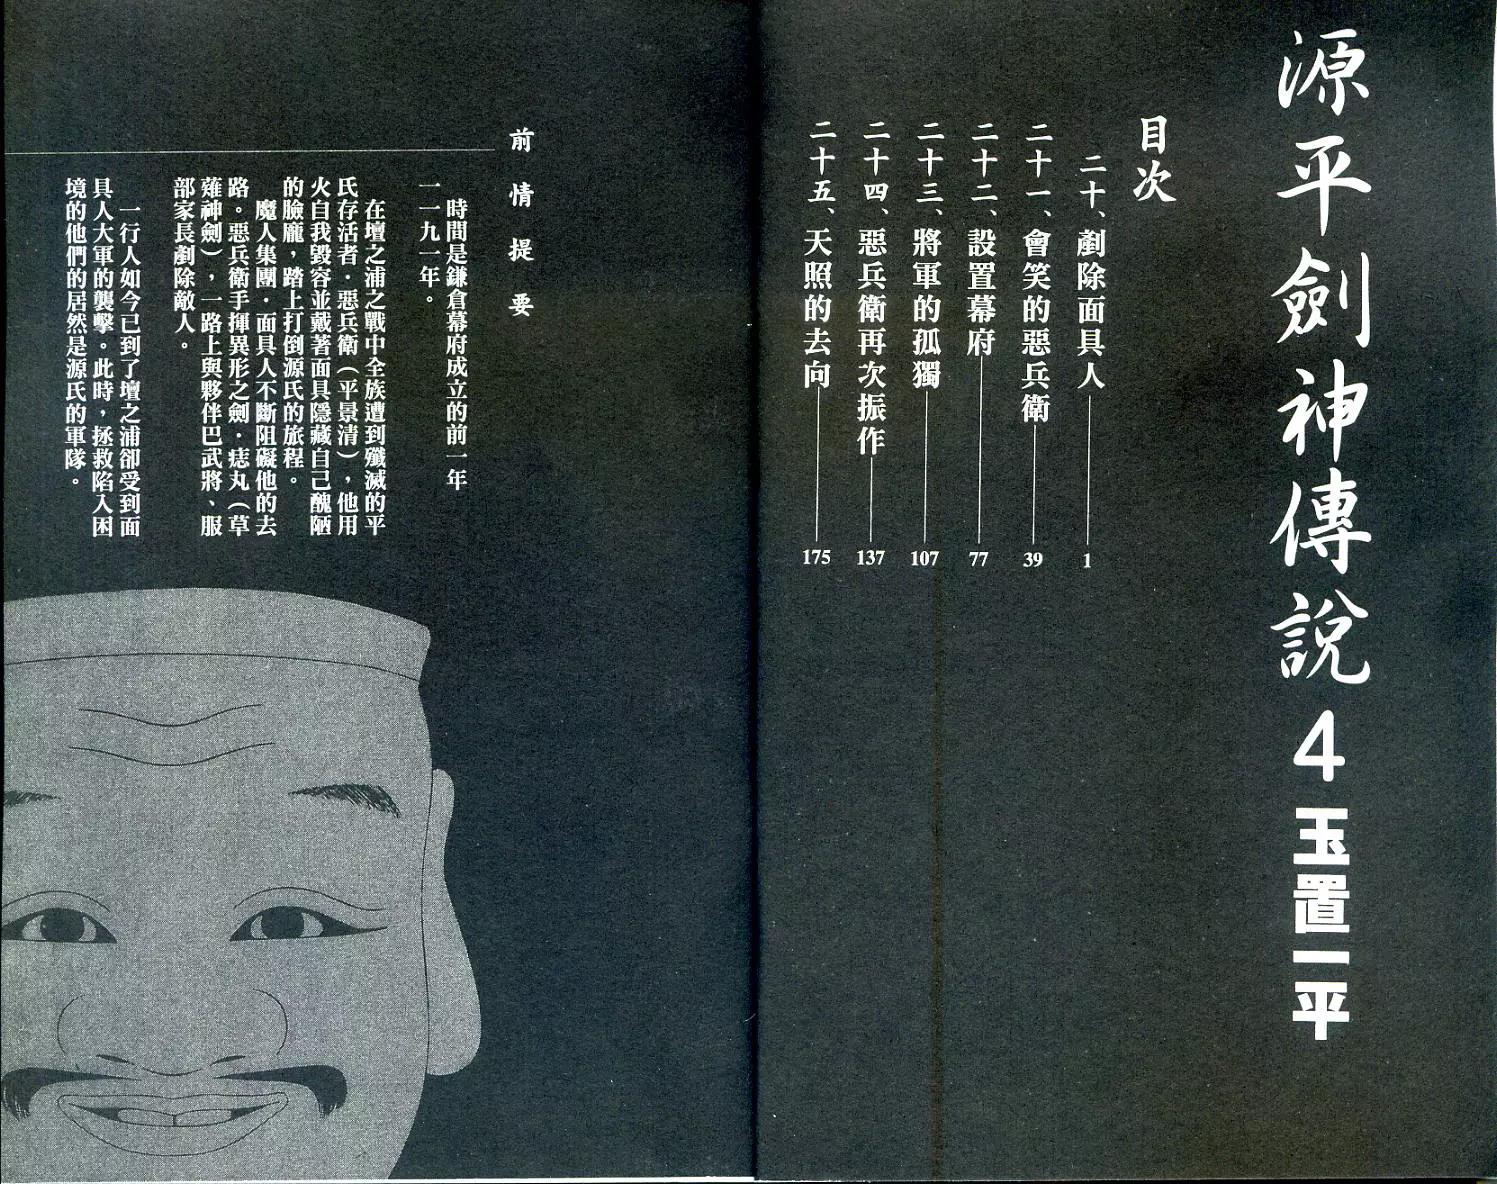 源平劍神傳說 4 玉置一平
目次
二十、剷除面具人 1
二十一、會笑的惡兵衛 39
二十二、設置幕府 77
二十三、將軍的孤獨 107
二十四、惡兵衛再次振作 137
二十五、天照的去向 175
前情提要
時間是鎌倉幕府成立的前一年
一一九一年。
在壇之浦之戰中全族遭到殲滅的平
氏存活者．惡兵衛（平景清），他用
火自我毀容並戴著面具隱藏自己醜陋
的臉龐，踏上打倒源氏的旅程。
魔人集團．面具人不斷阻礙他的去
路。惡兵衛手揮異形之劍．痣丸（草
薙神劍），一路上與夥伴巴武將、服
部家長剷除敵人。
一行人如今已到了壇之浦卻受到面
具人大軍的襲擊。此時，拯救陷入困
境的他們的居然是源氏的軍隊。